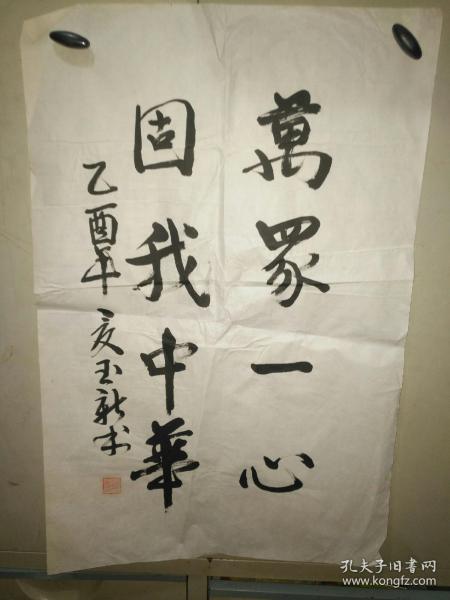 萬眾一心
固我中華
乙酉年 玉新书
孔夫子旧书网
www.kongfz.com